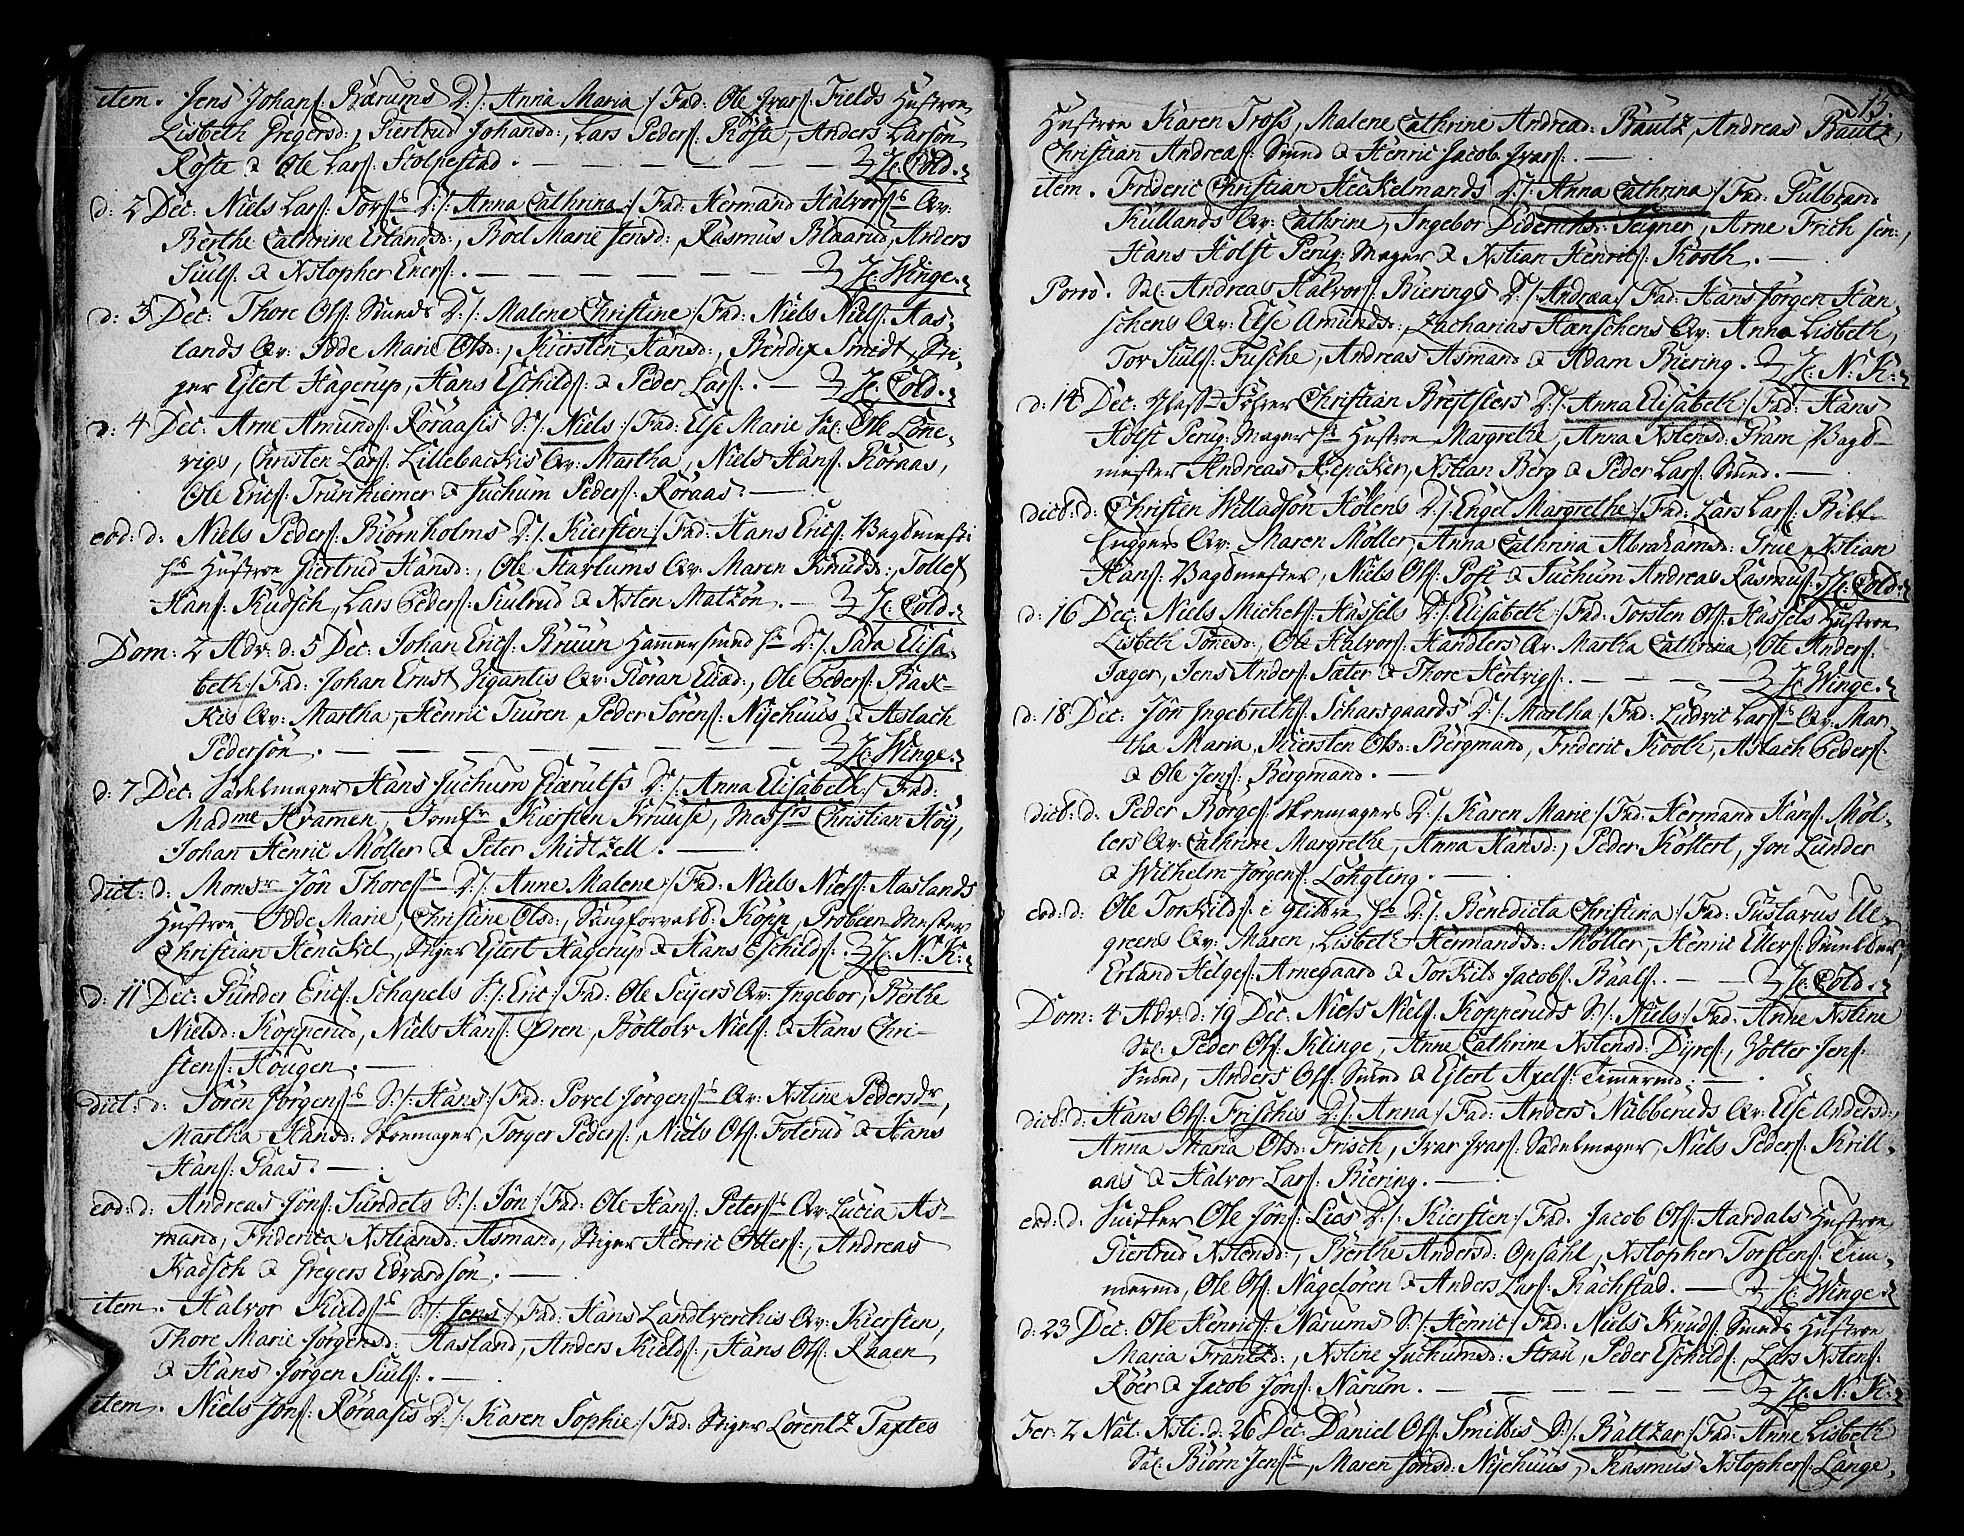 item. Jens Johans: Bærums D:/: Anna Maria :/ Fad: Ole Ivars: Fields Hustroe
Lisbeth Gregersd:, Giertrud Johansd:, Lars Peders: Röste, Anders Larsön
Röste & Ole Lars: Stolpestad. — H: Cold.
d: 2 Dec: Niels Lars: Tors D:/: Anna Cathrina :/ Fad: Hermand Halvors: Qv:
Berthe Cathrine Erlandsd:, Boel Marie Jensd:, Rasmus Blaarud, Anders
Siuls: & Xstopher Eners: — H: Winge.
d: 3 Dec: Thore Ols: Smeds D:/: Malene Christine :/ Fad: Niels Niels: Aas-
lands Qv: Idde Marie Olsd:, Kiersten Hansd:, Bendix Smidt, Sti-
ger Eylert Hagerup, Hans Eschilds: & Peder Lars: — H: Cold.
d: 4 Dec: Arne Amunds: Röraasis S:/: Niels :/ Fad: Else Marie Sal: Ole Lone-
vigs, Christen Lars: Lillebackis Qv: Martha, Niels Hans: Röraas,
Ole Erics: Trunhiemer & Juchum Peders: Röraas. —
eod: d: Niels Peders: Biörnholms D:/: Kiersten :/ Fad: Hans Erics: Bagdmesti
Hustroe Giertrud Hansd:, Ole Starlums Qv: Maren Knudsd:, Tollef
Hans: Kudsch, Lars Peders: Siulrud & Xsten Matzön. — H: Cold.
Dom: 2 Adv: d: 5 Dec: Johan Erics: Bruun Hammersmed D:/: Sara Elisa-
beth :/ Fad: Johan Ernst Gigantis Qv: Göran Eliæd:, Ole Peders: Back-
kes Qv: Martha, Henric Tuuren, Peder Sörens: Nyehuus & Aslach
Pedersön. — H: Winge.
d: 7 Dec: Sadelmager Hans Juchum Giærulfs D:/: Anna Elisabeth :/ Fad:
Madme Kramen, Jomfr Kiersten Kruuse, Messrs Christian Höy,
Johan Henric Möller & Peter Midtzell. —
dict: d: Monsr Jön Thores: D:/: Anne Malene :/ Fad: Niels Niels: Aaslands
Hustroe Idde Marie, Christine Olsd:, Sangforvalt: Kopp, Probeer Mester
Christian Henckel, Stiger Eylert Hagerup & Hans Eschilds: H: N: K:
d: 11 Dec: Gunder Erics: Schapels S:/: Eric :/ Fad: Ole Seyers Qv: Ingebor, Berthe
Nielsd: Kopperud, Niels Hans: Ören, Bottolv Niels: & Hans Chri-
stens: Hougen. —
dict: d: Sören Jörgens: S:/: Hans :/ Fad: Povel Jörgens: Qv: Xstine Pedersdr,
Martha Hansd: Skoemager, Torger Peders:, Niels Ols: Foterud & Hans
Hans: Gaas. —
eod: d: Andreas Jöns: Sundets S:/: Jön :/ Fad: Ole Hans: Peters: Qv: Lucia As-
mand, Friderica Xstiansd: Asmand, Stiger Henric Otters:, Andreas
Kadsch & Gregers Edvardsön. —
item. Halvor Kields: S:/: Jens :/ Fad: Hans Landtverchis Qv: Kiersten,
Thore Marie Jörgensd: Aasland, Anders Kields:, Hans Ols: Raaen
& Hans Jörgen Siuls: —
item. Niels Jöns: Röraasis D:/: Karen Sophie :/ Fad: Stiger Lorentz Taftes
15.
Hustroe Karen Tross, Malene Cathrine Andread: Bautz, Andreas Bautz,
Christian Andreas: Smed & Henric Jacob Ivars: —
item. Frideric Christian Heckelmands D:/: Anna Cathrina :/ Fad: Gulbrand
Kullands Qv: Cathrine, Ingebor Diderichsd: Seigner, Arne Frich sen:,
Hans Holst Perug: Mager & Xstian Henrics: Kooth. —
Porro. Sal: Andreas Halvors: Bierings D:/: Andrea :/ Fad: Hans Jörgen Hæn
schens Qv: Else Amundsd:, Zacharias Hænschens Qv: Anna Lisbeth,
Tor Siuls: Fusche, Andreas Asmand & Adam Biering. H: N: K:
d: 14 Dec: Glass Fölger Christian Breitslers D:/: Anna Elisabeth :/ Fad: Hans
Holst Perug: Mager Hustroe Margrethe, Anna Xstensd: Fram, Bagd-
mester Andreas Hencker, Xstian Berg & Peder Lars: Smed. —
dict: d: Christen Willadsön Holens D:/: Engel Margrethe :/ Fad: Lars Lars: Bilt-
huggers Qv: Maren Möller, Anna Cathrina Abrahamsd: Grue, Xstian
Hans: Bagdmester, Niels Ols: Post & Juchum Andreas Rasmus: H: Cold.
d: 16 Dec: Niels Michels: Hassels D:/: Elisabeth :/ Fad: Torsten Ols: Hassels Hustroe
Lisbeth Tönesd:, Ole Halvors: Handlers Qv: Martha Cathrina, Ole Anders:
Jager, Jens Anders: Sæter & Thore Hertvigs: — H: Winge.
d: 18 Dec: Jön Ingebreths: Scharsgaards D:/: Martha :/ Fad: Ludvic Lars: Qv: Mar-
tha Maria, Kiersten Olsd: Bergmand, Frideric Kooth, Aslach Peders:
& Ole Jens: Bergmand. —
dict: d: Peder Börges: Skoemagers D:/: Karen Marie :/ Fad: Hermand Hans: Möl-
lers Qv: Cathrine Margrethe, Anna Hansd:, Peder Kollert, Jon Lunder
& Wilhelm Jörgens: Löhgting. —
eod: d: Ole Torkilds: i Glitre D:/: Benedicta Christina :/ Fad: Gustavus Ue-
greens Qv: Maren, Lisbeth Hermandsd: Möller, Henric Ellers: Smelther,
Erland Helges: Arnegaard & Torkild Jacobs: Baals: — H: Cold.
Dom: 4 Adv: d: 19 Dec: Niels Niels: Kopperuds S:/: Niels :/ Fad: Anne Xstine
Sal: Peder Ols: Klinge, Anne Cathrine Xstensd: Dyres:, Wolter Jens:
Smed, Anders Ols: Smed & Eylert Axels: Timermd: —
dict: d: Hans Ols: Frischis D:/: Anna :/ Fad: Anders Nubberuds Qv: Else Andersd:,
Anna Maria Olsd: Frisch, Ivar Ivars: Sadelmager, Niels Peders: Krill-
aas & Halvor Lars: Biering. —
eod: d: Smelter Ole Jöns: Lies D:/: Kiersten :/ Fad: Jacob Ols: Aardals Hustroe
Giertrud Xstensd:, Berthe Andersd: Opsahl, Xstopher Torstens: Tim-
mermd, Ole Ols: Nagelören & Anders Lars: Rachstad. — H: Winge.
d: 23 Dec: Ole Henrics: Narums S:/: Henric :/ Fad: Niels Knuds: Smeds Hustroe
Maria Frantzd:, Xstine Juchumsd: Strau, Peder Eschilds:, Lars Xstens:
Röer & Jacob Jöns: Narum. — H: N: K:
Fer: 2 Nat: Xsti. d: 26 Dec: Daniel Ols: Smidts S:/: Baltzar :/ Fad: Anne Lisbeth
Sal: Biörn Jens:, Maren Jönsd: Nyehuus, Rasmus Xstophers: Lange,